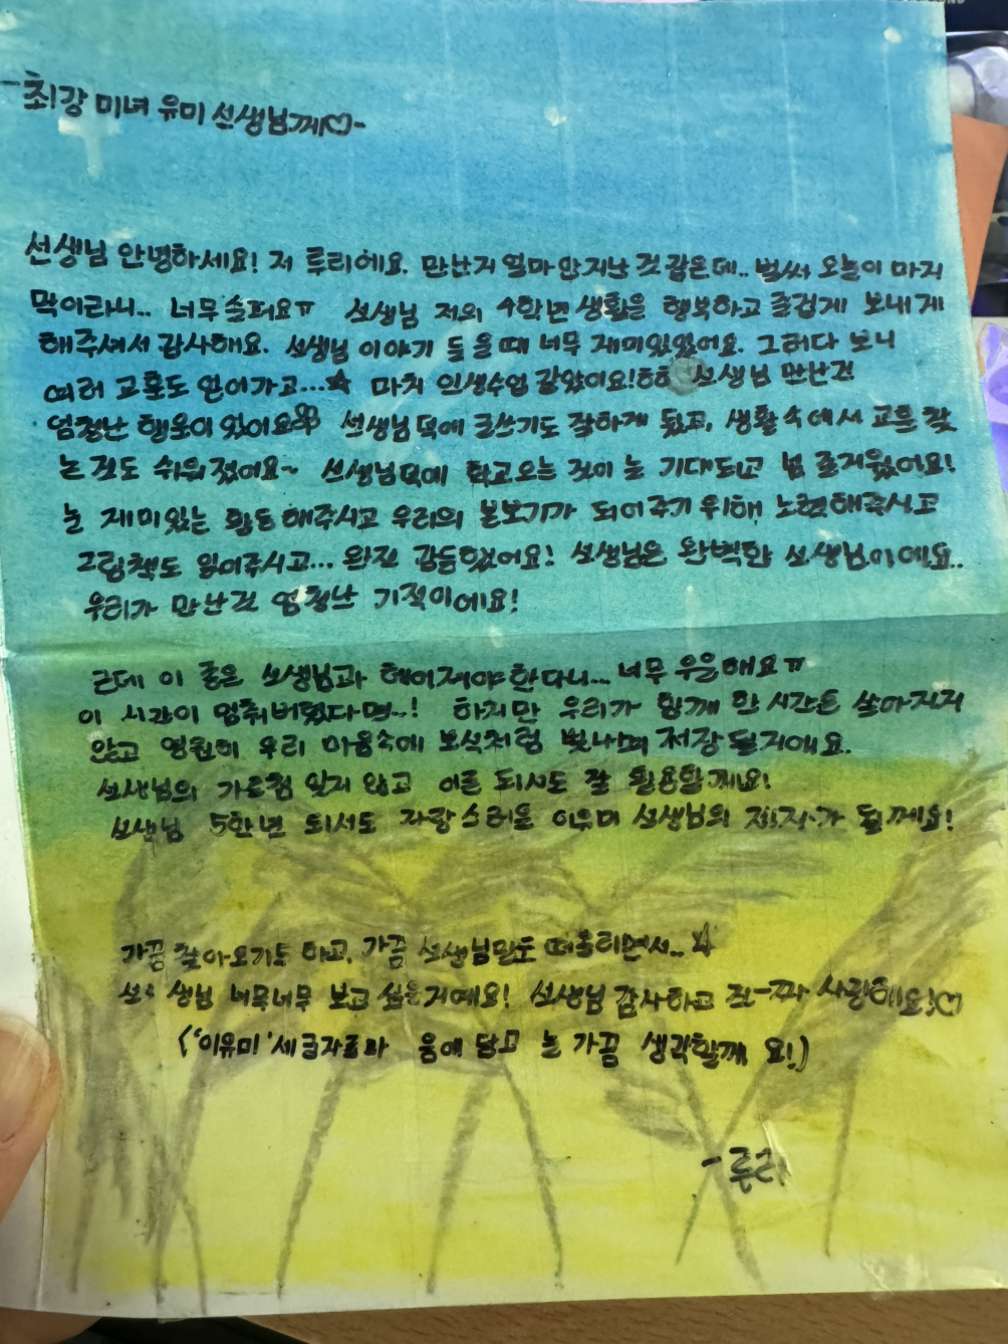 -최강 미녀 유미 선생님께♡-
선생님 안녕하세요! 저 루리에요. 만난지 얼마 안 지난 것 같은데.. 벌써 오늘이 마지
막이라니.. 너무 슬퍼요ㅠ 선생님 저의 4학년 생활을 행복하고 즐겁게 보내게
해주셔서 감사해요. 선생님 이야기 들을 때 너무 재미있었어요. 그러다 보니
여러 교훈도 얻어가고...☆ 마치 인생수업 같았어요!ㅎㅎ 선생님 만난건
엄청난 행운이었어요 선생님 덕에 글쓰기도 잘하게 됐고, 생활 속에서 교훈 찾
는 것도 쉬워졌어요~ 선생님덕에 학교오는 것이 늘 기대되고 넘 즐거웠어요!
늘 재미있는 활동 해주시고 우리의 본보기가 되어주기 위해 노력해주시고
그림책도 읽어주시고... 완전 감동했어요! 선생님은 완벽한 선생님이에요..
우리가 만난건 엄청난 기적이에요!
근데 이 좋은 선생님과 헤어져야 한다니... 너무 우울해요ㅠ
이 시간이 멈춰버렸다면..! 하지만 우리가 함께 한 시간은 살아지지
않고 영원히 우리 마음속에 보석처럼 빛나며 저장 될거에요.
선생님의 가르침 잊지 않고 어른 되서도 잘 활용할게요!
선생님 5학년 되서도 자랑스러운 이유미 선생님의 제자가 될께요!
가끔 찾아오기도 하고, 가끔 선생님만도 떠올리면서..☆
선생님 너무너무 보고 싶을거예요! 선생님 감사하고 진-짜 사랑해요!♡
('이유미' 세글자를 마 음에 담고 늘 가끔 생각할께 요!)
-루리